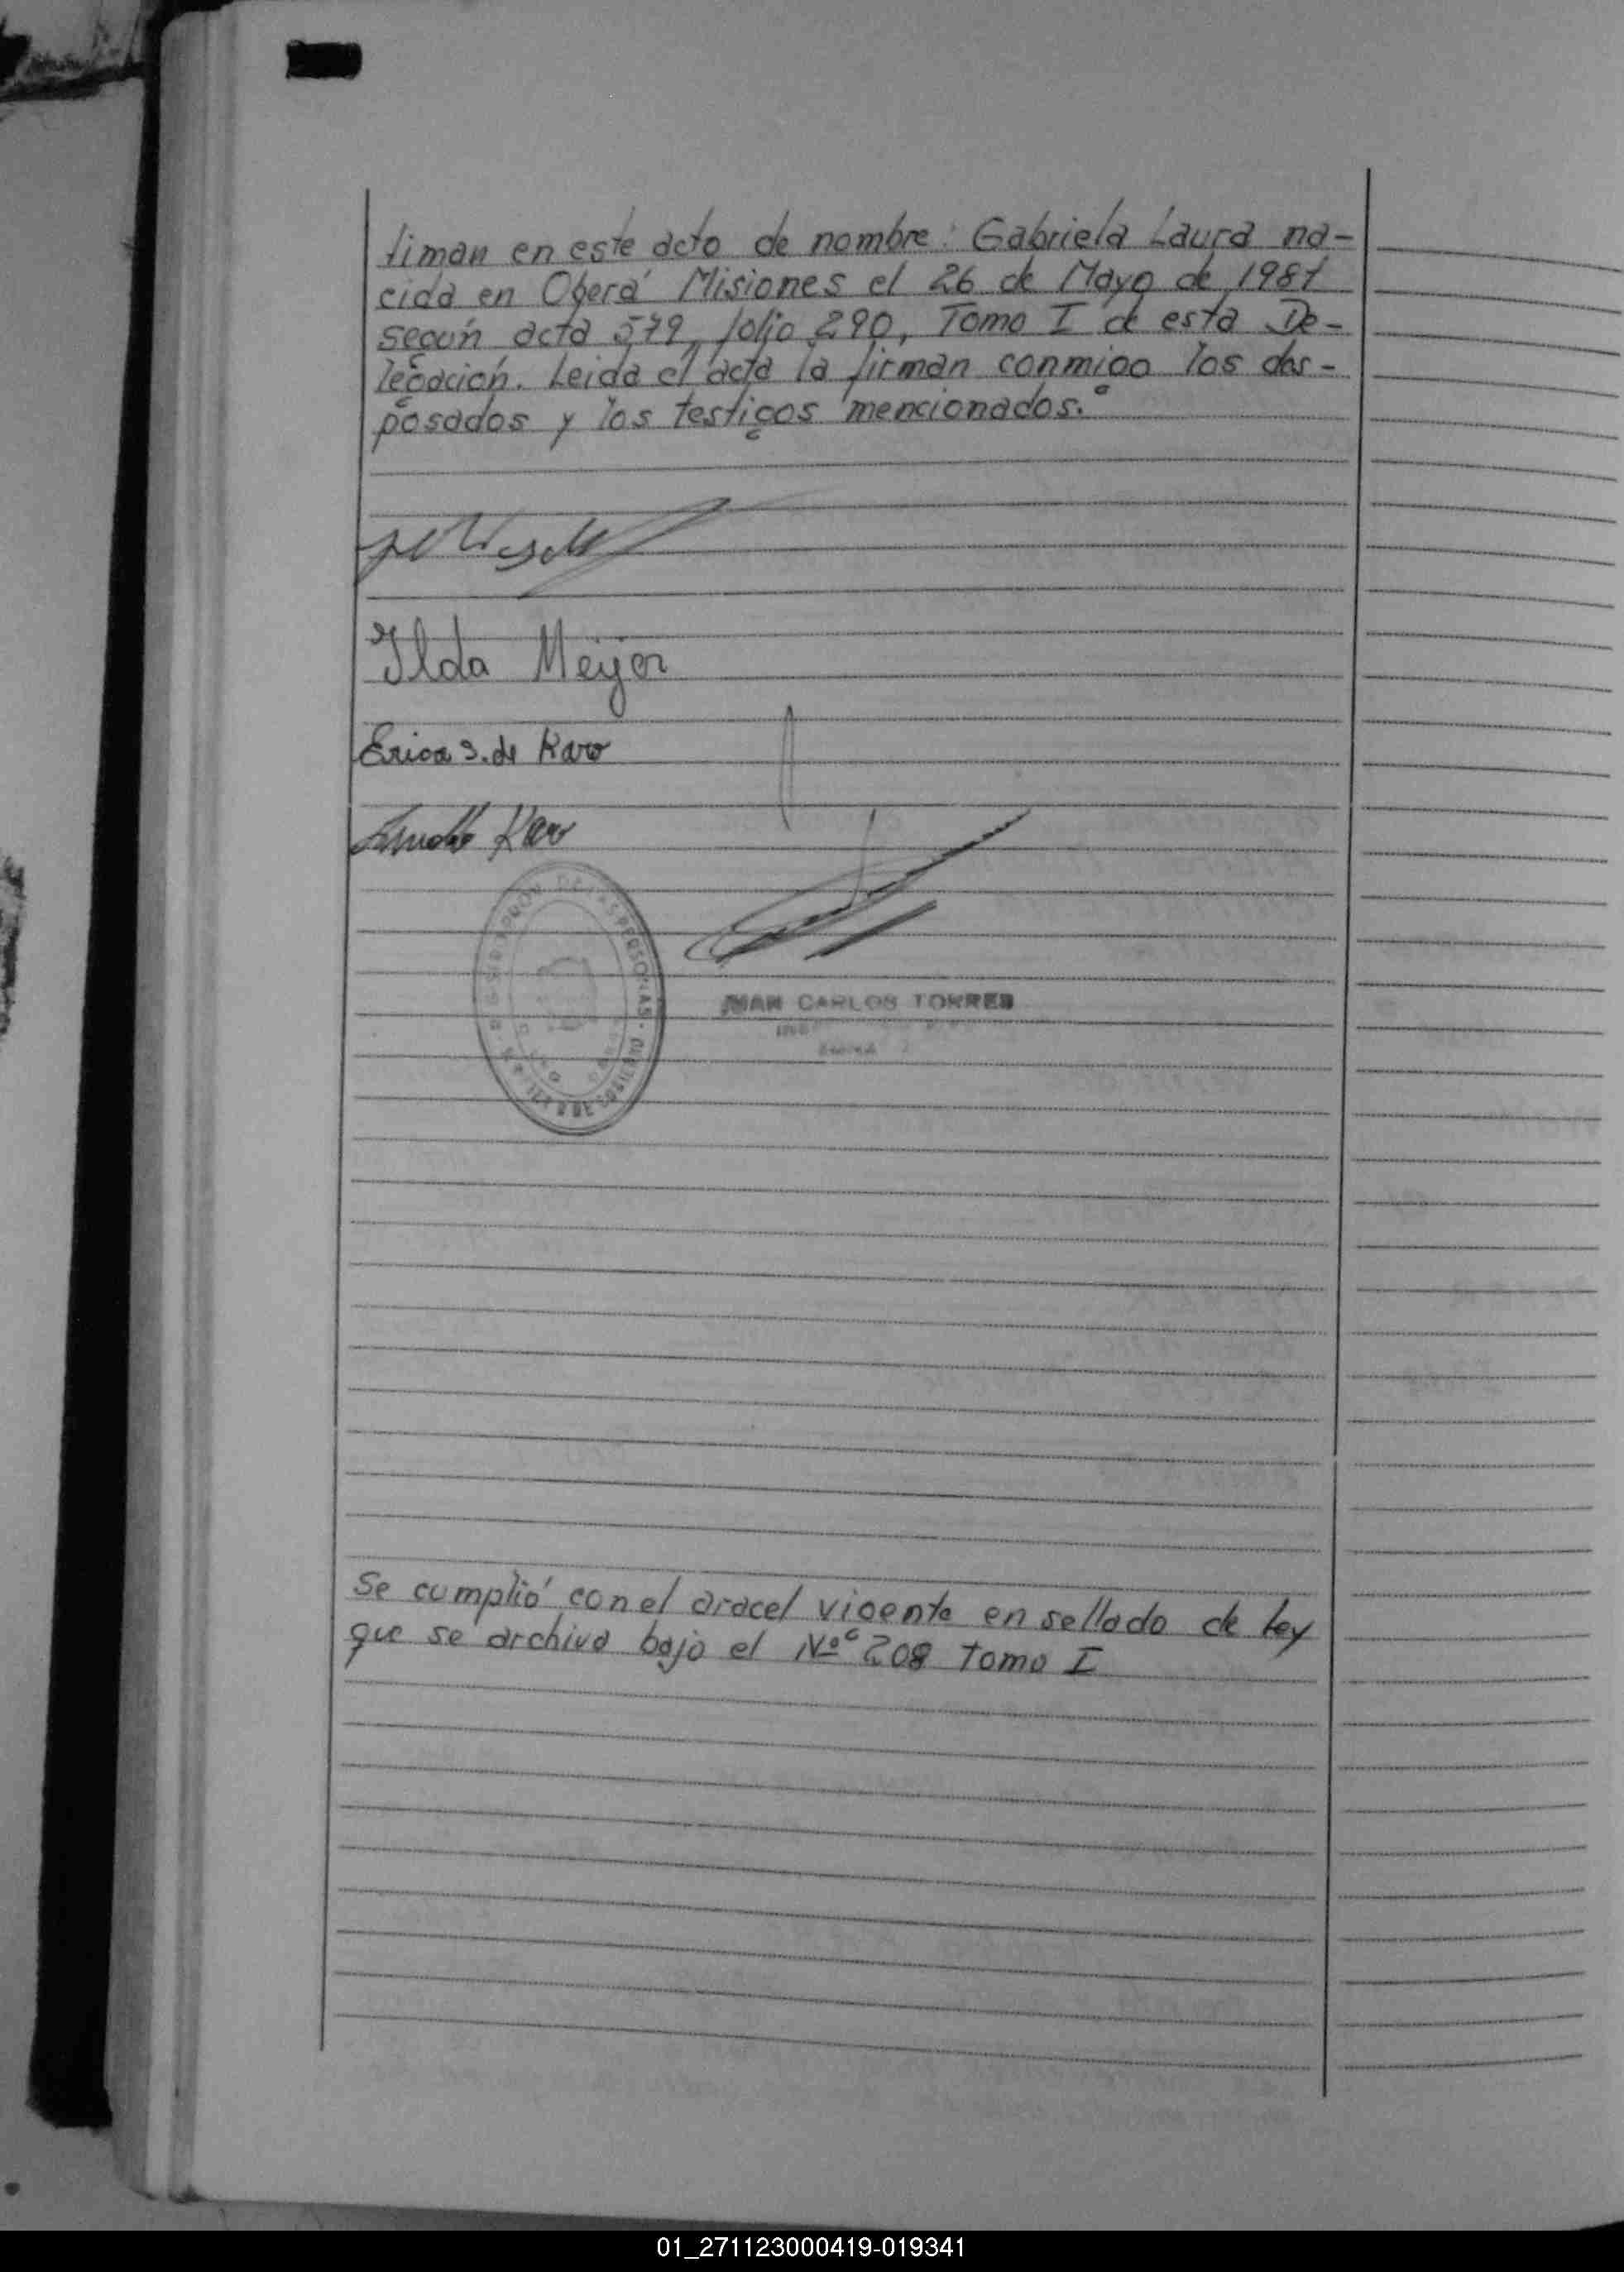 timan en este acto de nombre: Gabriela Laura na-
cida en Oberá Misiones el 26 de Mayo de 1981
según acta 579, folio 290, Tomo I de esta De-
legación. Leida el acta la firman conmigo los des-
posados y los testigos mencionados.
Ilda Meyer
Erica S. de Karo
Karo
JUAN CARLOS TORRES
DE LAS PERSONAS
Se cumplió con el aracel vigente en sellado de Ley
que se archiva bajo el Nº 208 Tomo I
01_271123000419-019341